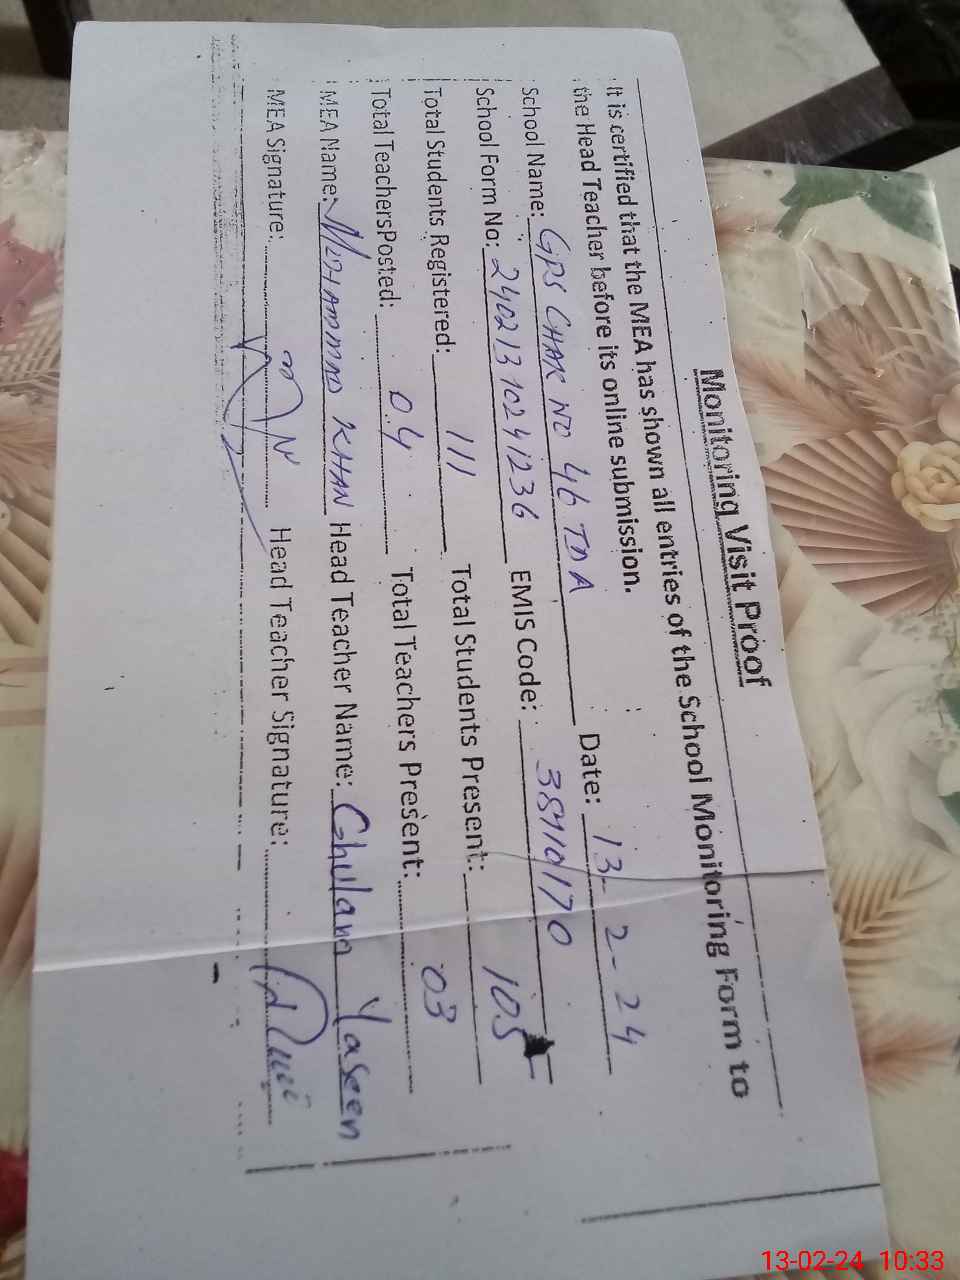 Monitoring Visit Proof
It is certified that the MEA has shown all entries of the School Monitoring Form to
the Head Teacher before its online submission.
School Name: GPS CHAK NO 46 TDA Date: 13-2-24
School Form No: 24021310241236 EMIS Code: 38410170
Total Students Registered: 111 Total Students Present: 105
Total TeachersPosted: 04 Total Teachers Present: 03
MEA Name: MUHAMMAD KHAN Head Teacher Name: Ghulam Yaseen
MEA Signature: Head Teacher Signature:
13-02-24 10:33